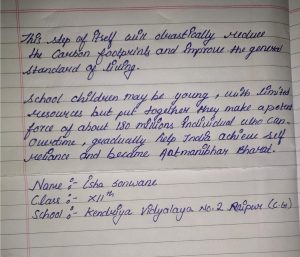 This step of itself will drastically reduce
the Carbon footprints and improve the general
standard of living.
School children may be young, with limited
resources but put together they make a potent
force of about 180 millions individual who can
overtime, gradually help India achieve self
reliance and become Aatmanibhar Bharat.
Name :- Isha Sonwane
Class :- XIIth
School :- Kendriya Vidyalaya No. 2 Raipur (C.G)